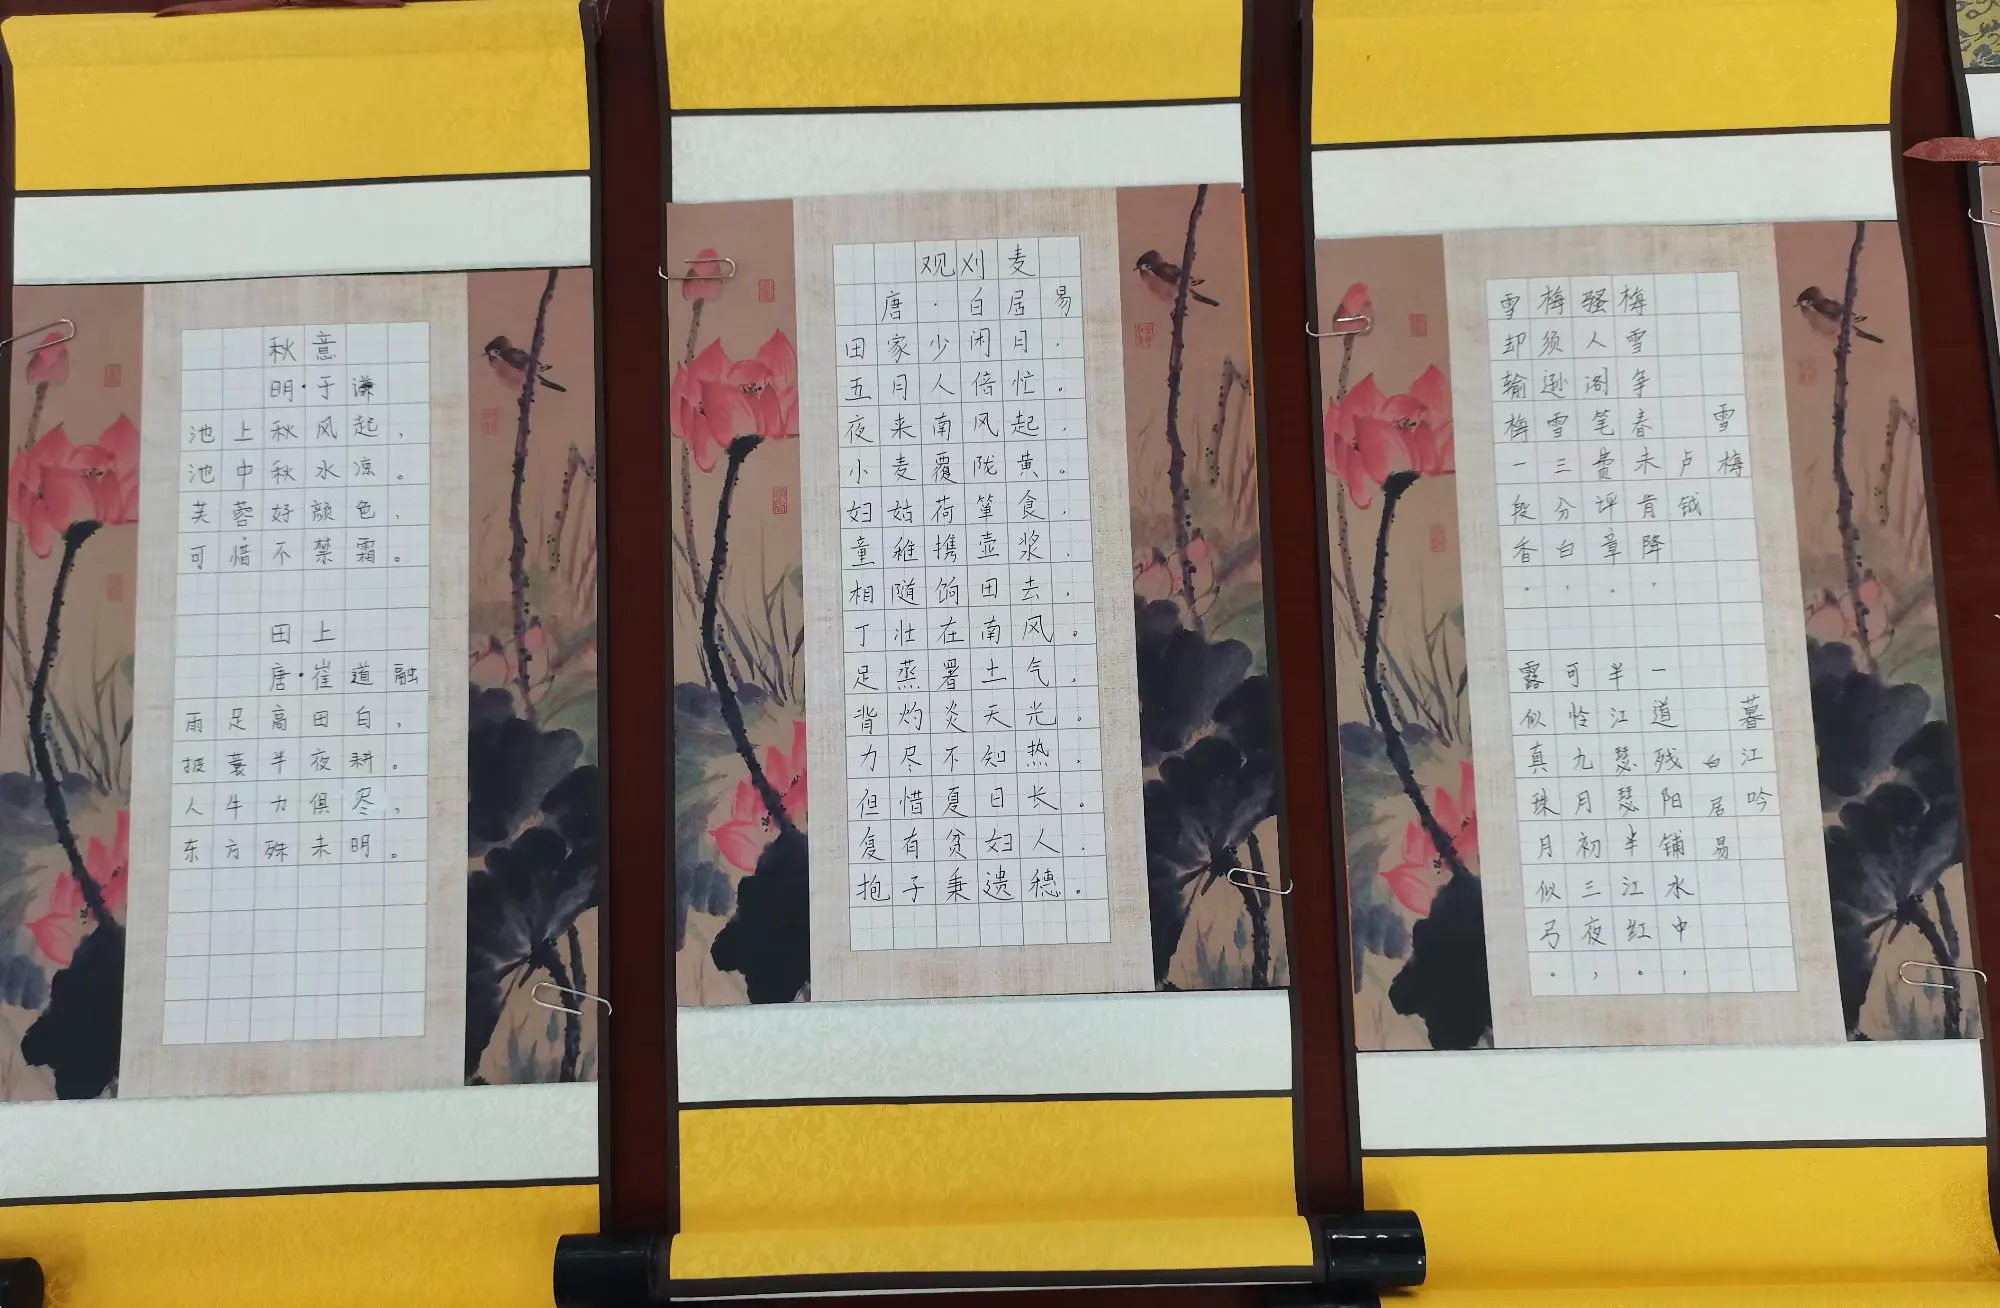 秋意
明·于谦
池上秋风起，
池中秋水凉。
芙蓉好颜色，
可惜不禁霜。
田上
唐·崔道融
雨足高田白，
披蓑半夜耕。
人牛力俱尽，
东方殊未明。
观刈麦
唐·白居易
田家少闲月，
五月人倍忙。
夜来南风起，
小麦覆陇黄。
妇姑荷箪食，
童稚携壶浆，
相随饷田去，
丁壮在南风。
足蒸署土气，
背灼炎天光。
力尽不知热，
但惜夏日长。
复有贫妇人，
抱子秉遗穗。
雪梅
卢钺
梅雪争春未肯降，
骚人阁笔费评章。
梅须逊雪三分白，
雪却输梅一段香。
暮江吟
白居易
一道残阳铺水中，
半江瑟瑟半江红。
可怜九月初三夜，
露似真珠月似弓。